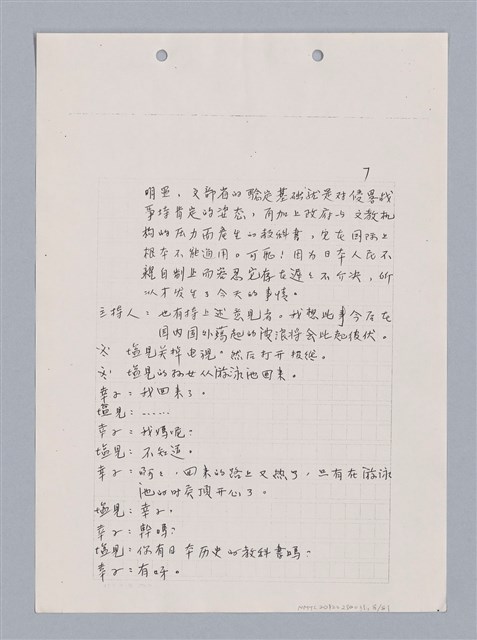 7
明显，文部省的驗定基础就是对侵畧战
争持肯定的姿态，再加上政府与文教机
构的压力而產生的教科書，它在国际上
根本不能通用。可恥！因为日本人民不
親自制止而容忍它存在遲遲不分决，所
以才发生了今天的事情。
主持人：也有持上述意見者。我想此事今后在
国内国外荡起的波浪将会此起彼伏。
塩見关掉电視。然后打开枝総。
塩見的孙女从游泳池回来。
幸子：我回来了。
塩見：……
幸子：我媽呢？
塩見：不知道。
幸子：啊々，回来的路上又热了，只有在游泳
池的时候頂开心了。
塩見：幸子。
幸子：幹嗎？
塩見：你有日本历史的教科書嗎？
幸子：有呀。